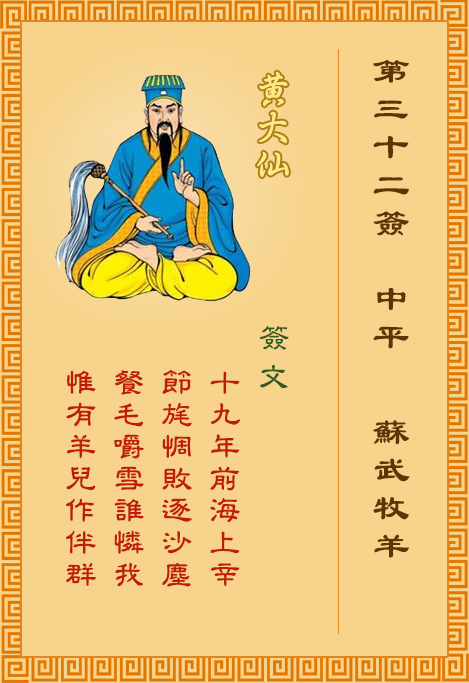 第三十二簽 中平 蘇武牧羊
黃大仙
簽文
十九年前海上辛
節旄惆敗逐沙塵
餐毛嚼雪誰憐我
惟有羊兒作伴群